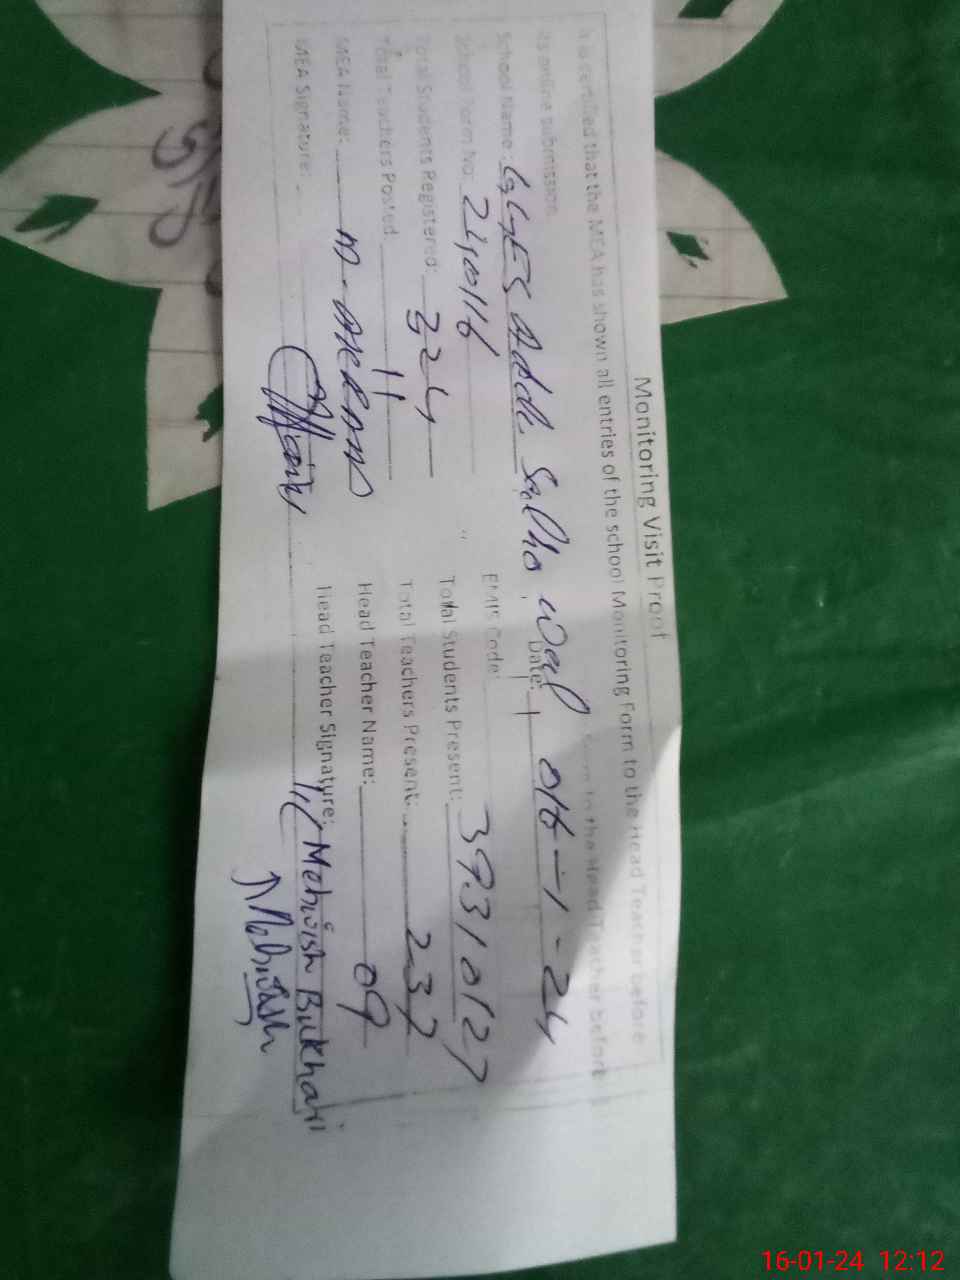 Monitoring Visit Proof
It is certified that the MEA has shown all entries of the school Monitoring Form to the Head Teacher before
its online submission.
School Name: GGES Adda Date: 016-1-24
School Form No: EMIS Code: 39310127
Total Students Registered: 324 Total Students Present: 237
Total Teachers Posted 11 Total Teachers Present: 09
MEA Name: M. Head Teacher Name: Mehwish Bukhari
MEA Signature: Head Teacher Signature: Mehwish
16-01-24 12:12